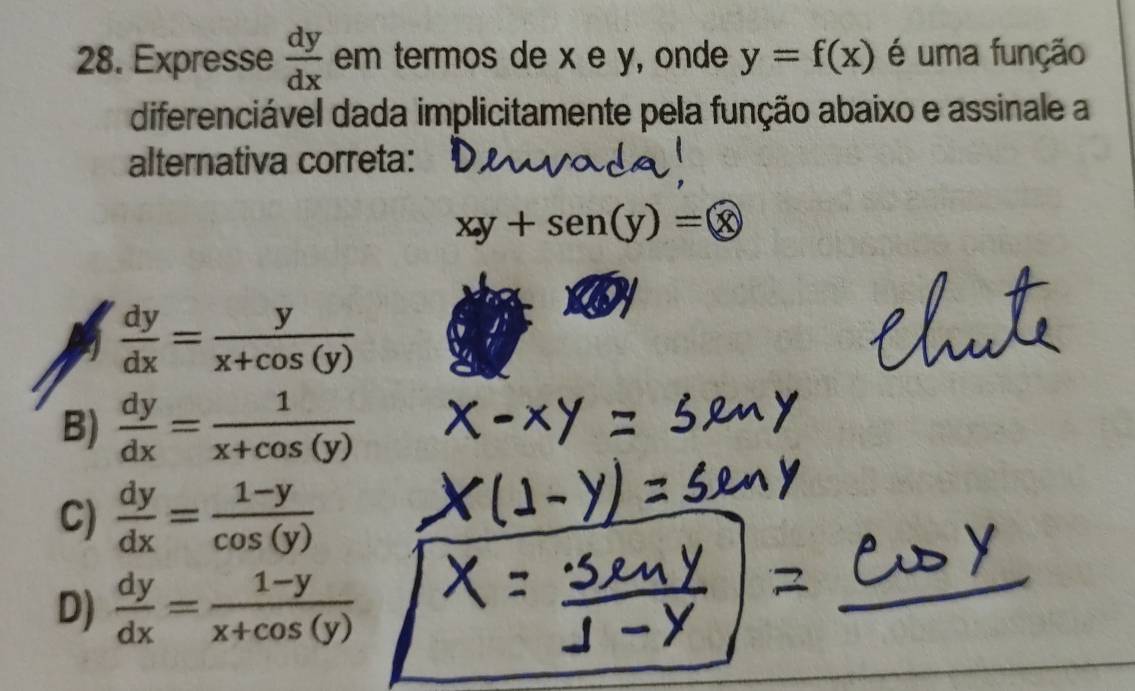 28. Expresse dy/dx em termos de x e y, onde y = f(x) é uma função
diferenciável dada implicitamente pela função abaixo e assinale a
alternativa correta: Derivada!
xy + sen(y) = x
A) dy/dx = y/(x+cos (y))
chute
B) dy/dx = 1/(x+cos (y))
x - xy = sen y
C) dy/dx = (1-y)/cos (y)
x(1-y) = sen y
D) dy/dx = (1-y)/(x+cos (y))
x = sen y/(1-y) = cos y